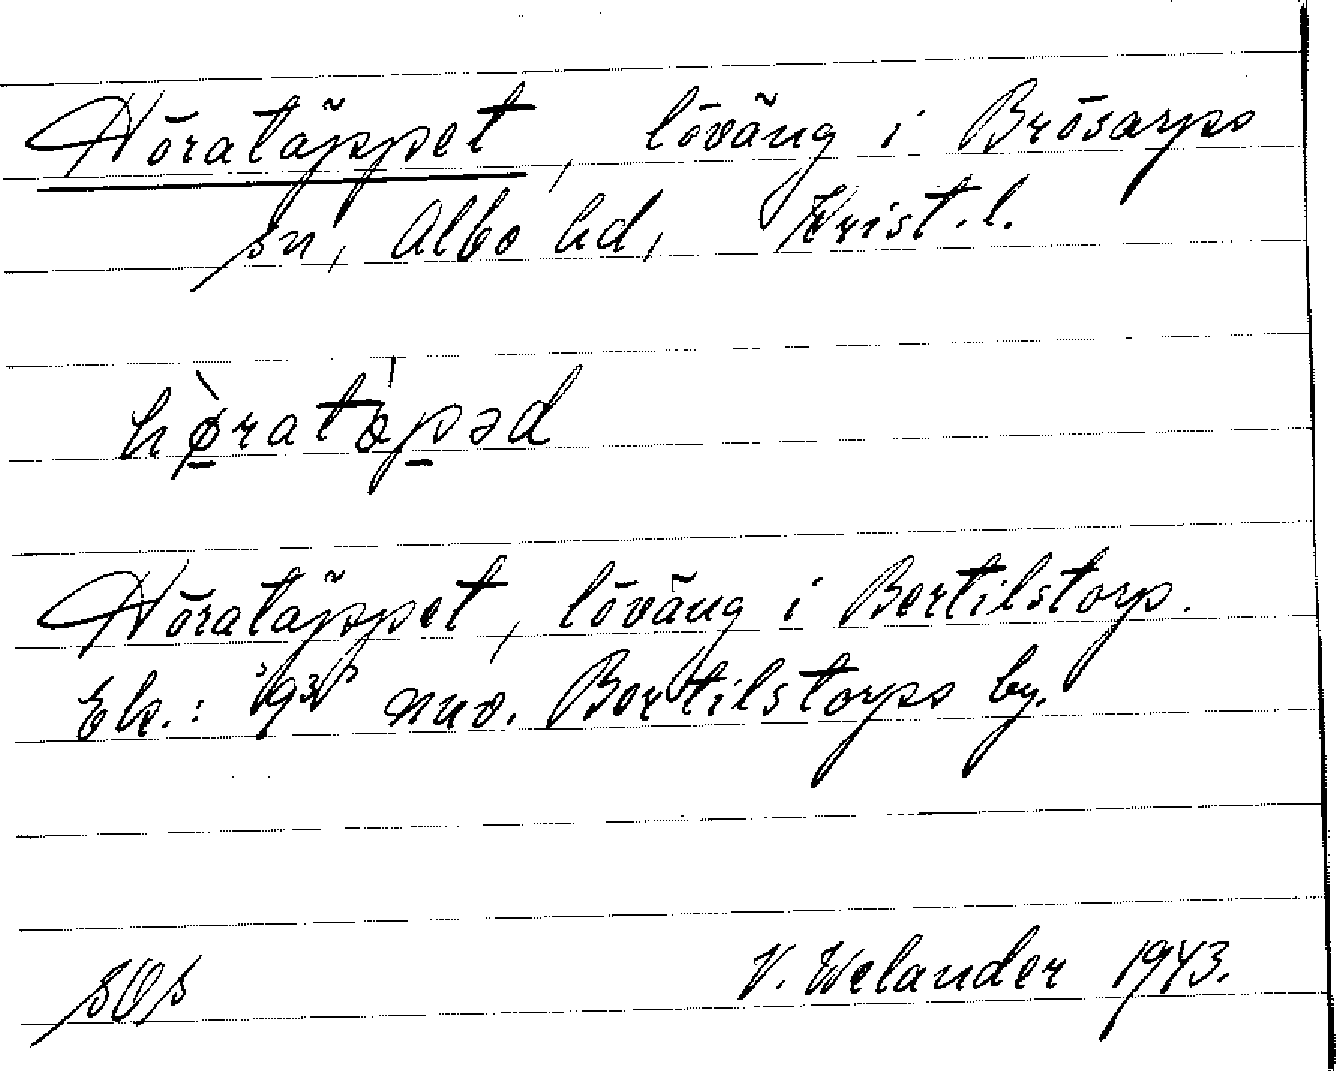 Höratäppet, löväng i Brösarps
sn, Albo hd, Krist. l.
hø̀ratæpəd
Höratäppet, löväng i Bertilstorp.
Ek.: nuv. Bertilstorps by.
SOS V. Welander 1943.